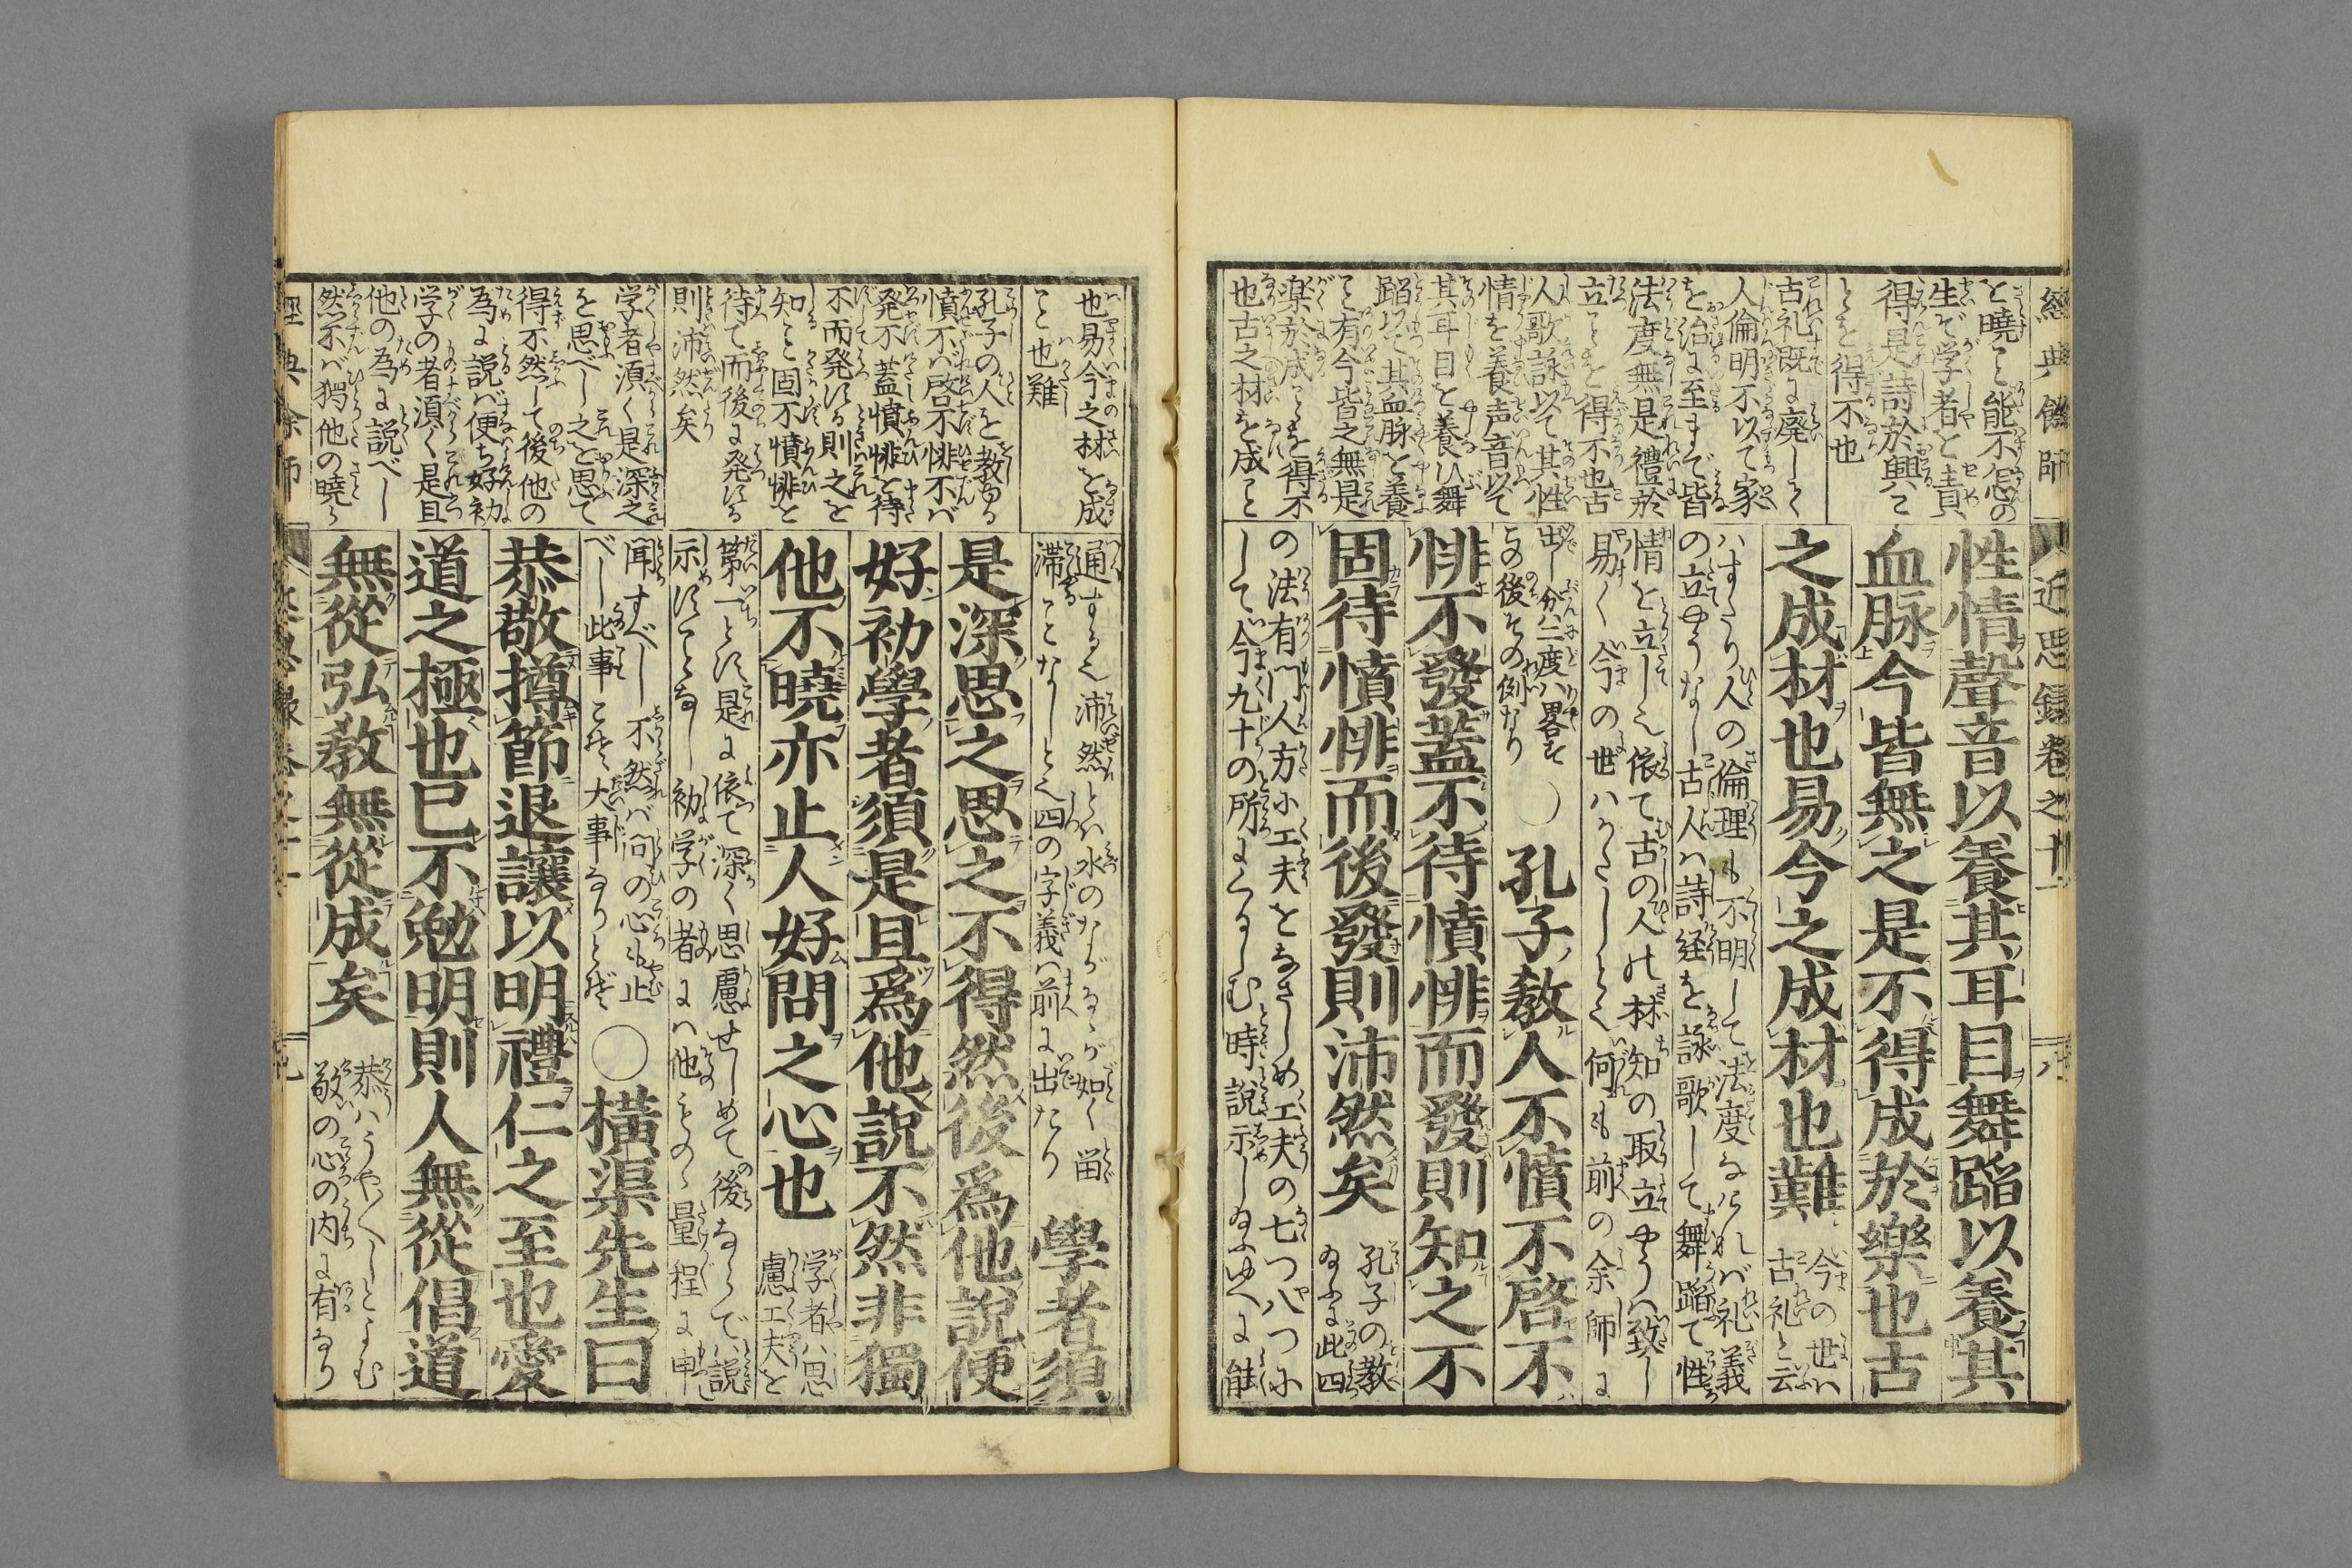 經典餘師
近思録卷之十一
と曉こと能不怎の
生で学者と責
得是詩於興こ
とを得不也
古礼既に廃して
人倫明不以て家
を治に至まで皆
法度無是禮於
立ことを得不也古
人歌詠以て其性
情を養声音以て
其耳目を養ひ舞
蹈以て其血脉を養
こと有今皆之無是
楽於成ことを得不
也古之材を成こと
性情聲音以養其耳目舞蹈以養其
血脉今皆無之是不得成於樂也古
之成材也易今之成材也難
今の世ハ
古礼と云
ハすたり人の倫理も不明して法度なけれバ礼義
の立やうなし古人ハ詩経を詠歌して舞蹈て性
情を立しむ依て古の人の材知の取立やうハ致し
易く今の世ハかたしとく何も前の余師に
出し分ハ二度ハ畧す
その後その例なり
○孔子教人不憤不啓不
悱不發蓋不待憤悱而發則知之不
固待憤悱而後發則沛然矣
孔子の教
給ふに此四
の法有門人方に工夫をなさしめ工夫の七つ八つに
して今九十の所にくるしむ時説示し給ふゆへに能
也易今之材を成
こと也難
孔子の人を教る
憤不バ啓不悱不バ
発不蓋憤悱を待
不而発する則之を
知こと固不憤悱を
待て而後に発する
則沛然矣
学者須く是深之
を思べし之を思て
得不然して後他の
為に説バ便ち好初
学の者須く是且
他の為に説べし
然不バ獨他の曉
通するく沛然とハ水のながるゝが如く畄
滞ことなしと也四の字義ハ前に出たり
學者須
是深思之思之不得然後爲他說便
好初學者須是且爲他說不然非獨
他不曉亦止人好問之心也
学者ハ思
慮工夫を
第一とす是に依て深く思慮せしめて後ならでハ説
示すことなし初学の者にハ他その量程に申
聞すべし不然バ問の心も止
べし此事こそ大事なりとぞ
○橫渠先生曰
恭敬撙節退讓以明禮仁之至也愛
道之極也已不勉明則人無從倡道
無從弘教無從成矣
恭ハうや〱しとよむ
敬の心の内に有なり
經典余師